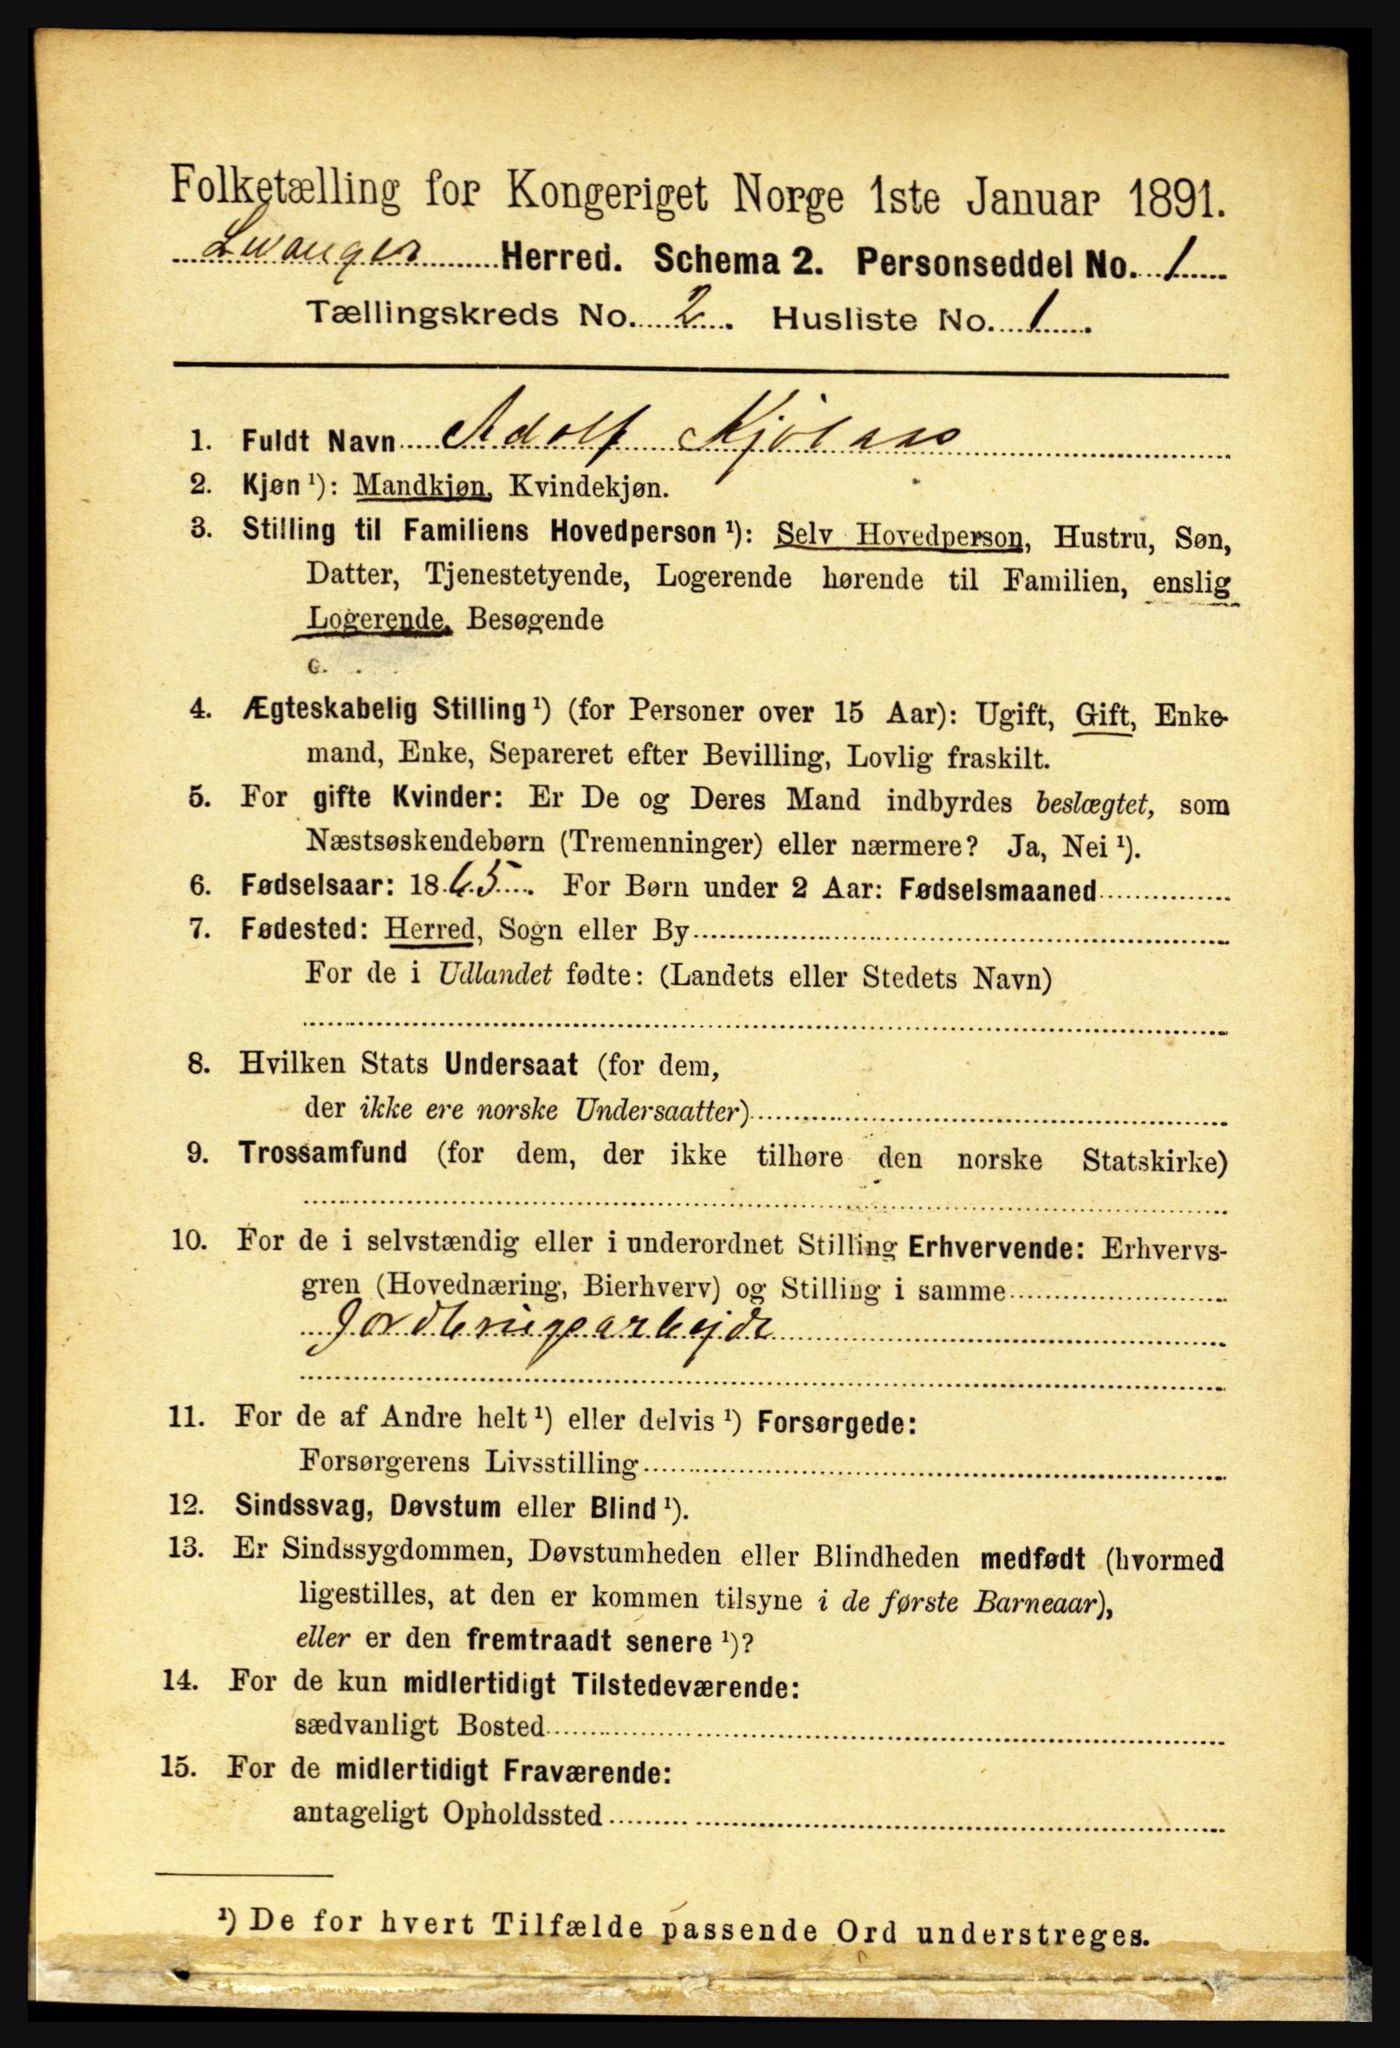 Folketælling for Kongeriget Norge 1ste Januar 1891.
Levanger Herred. Schema 2. Personseddel No. 1
Tællingskreds No. 2. Husliste No. 1.
1. Fuldt Navn Adolf Kjölaas
2. Kjøn ¹): Mandkjøn, Kvindekjøn.
3. Stilling til Familiens Hovedperson ¹): Selv Hovedperson, Hustru, Søn,
Datter, Tjenestetyende, Logerende hørende til Familien, enslig
Logerende, Besøgende
4. Ægteskabelig Stilling ¹) (for Personer over 15 Aar): Ugift, Gift, Enke-
mand, Enke, Separeret efter Bevilling, Lovlig fraskilt.
5. For gifte Kvinder: Er De og Deres Mand indbyrdes beslægtet, som
Næstsøskendebørn (Tremenninger) eller nærmere? Ja, Nei ¹).
6. Fødselsaar: 1865. For Børn under 2 Aar: Fødselsmaaned
7. Fødested: Herred, Sogn eller By
For de i Udlandet fødte: (Landets eller Stedets Navn)
8. Hvilken Stats Undersaat (for dem,
der ikke ere norske Undersaatter)
9. Trossamfund (for dem, der ikke tilhøre den norske Statskirke)
10. For de i selvstændig eller i underordnet Stilling Erhvervende: Erhvervs-
gren (Hovednæring, Bierhverv) og Stilling i samme
Jordbrugsarbejde
11. For de af Andre helt ¹) eller delvis ¹) Forsørgede:
Forsørgerens Livsstilling
12. Sindssvag, Døvstum eller Blind ¹).
13. Er Sindssygdommen, Døvstumheden eller Blindheden medfødt (hvormed
ligestilles, at den er kommen tilsyne i de første Barneaar),
eller er den fremtraadt senere ¹)?
14. For de kun midlertidigt Tilstedeværende:
sædvanligt Bosted
15. For de midlertidigt Fraværende:
antageligt Opholdssted
¹) De for hvert Tilfælde passende Ord understreges.